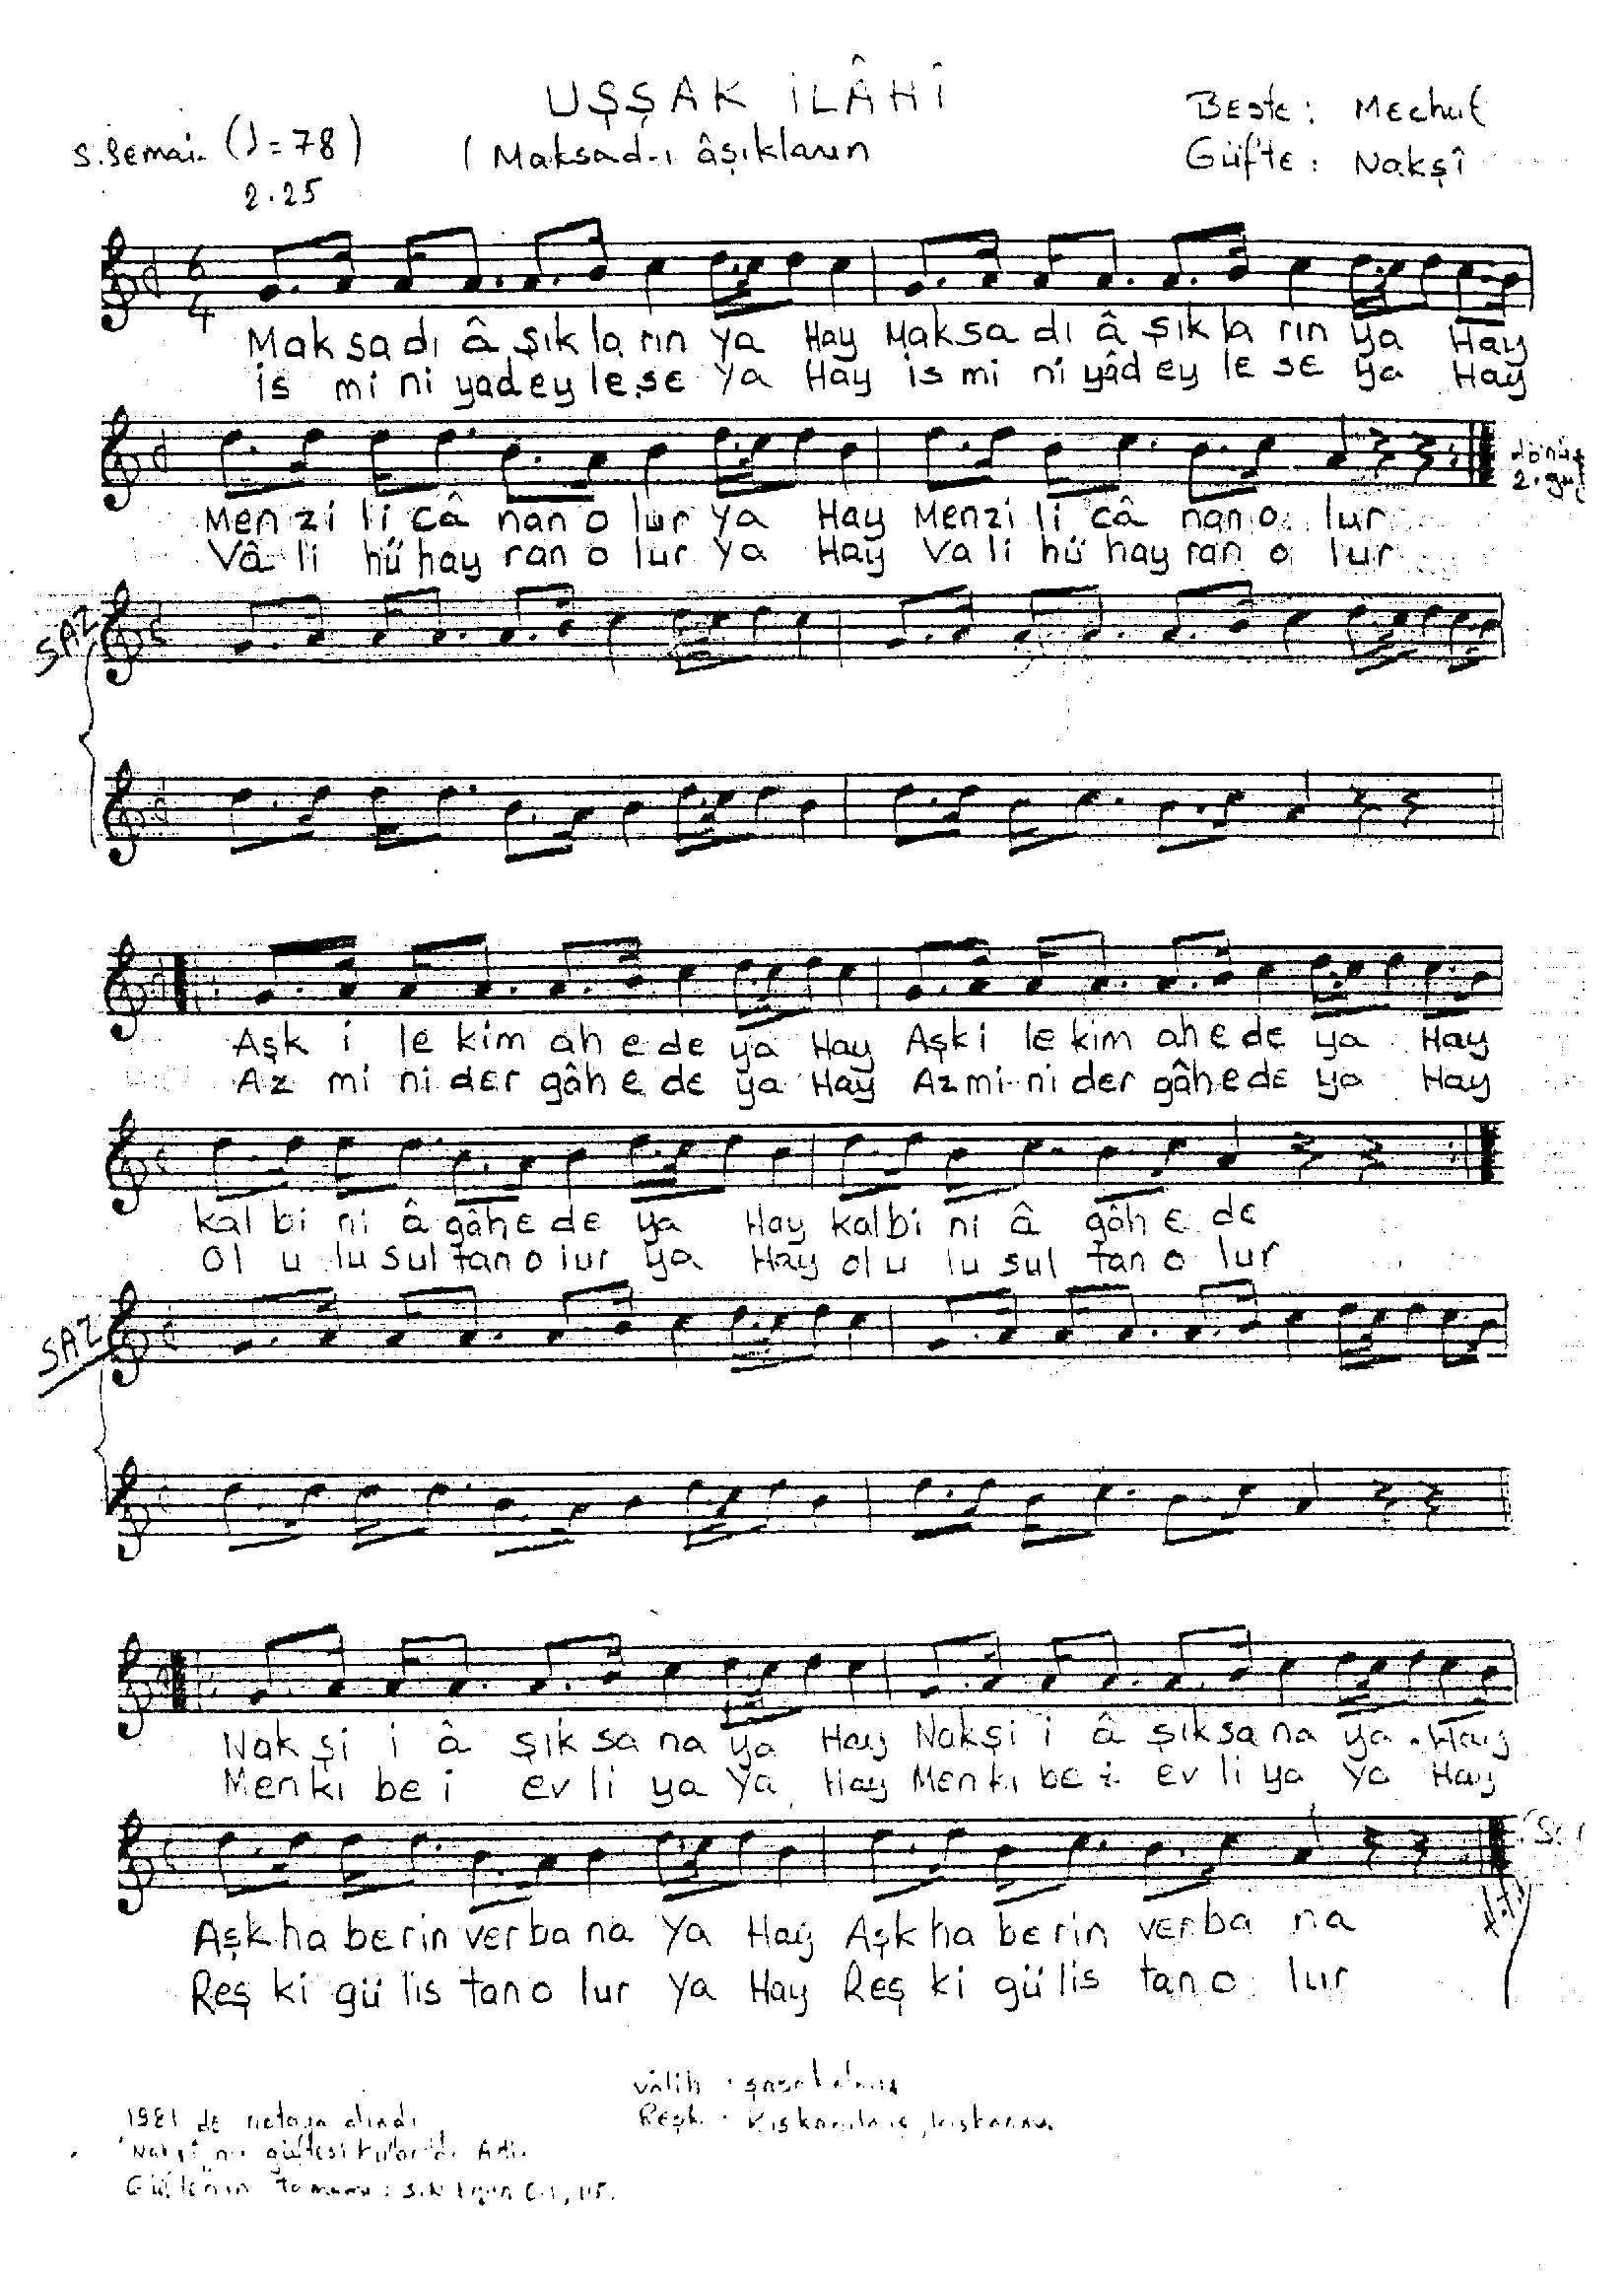 UŞŞAK İLÂHÎ
S.Semai. (♩=78)
2.25
(Maksad-ı âşıkların
Beste: Meçhul
Güfte: Nakşî
6
4
Mak sa dı â şık la rın ya Hay Mak sa dı â şık la rın ya Hay
is mi ni yad ey le se ya Hay is mi ni yâd ey le se ya Hay
dönüş
Men zi li câ nan o lur ya Hay Men zi li câ nan o lur
Vâ li hü hay ran o lur ya Hay Va li hü hay ran o lur
SAZ
Aşk i le kim ah e de ya Hay Aşk i le kim ah e de ya Hay
Az mi ni der gâh e de ya Hay Az mi ni der gâh e de ya Hay
kal bi ni â gâh e de ya Hay kal bi ni â gâh e de
Ol u lu sul tan o lur ya Hay ol u lu sul tan o lur
SAZ
Nak şi i â şık sa na ya Hay Nak şi i â şık sa na ya Hay
Men kı be i ev li ya Ya Hay Men kı be i ev li ya Ya Hay
Aşk ha be rin ver ba na Ya Hay Aşk ha be rin ver ba na
Reş ki gü lis tan o lur Ya Hay Reş ki gü lis tan o lur
vâlih :
Reşk : Kıskanılmış,
1981 de notaya alındı
güftesi
Güftenin tamamı :